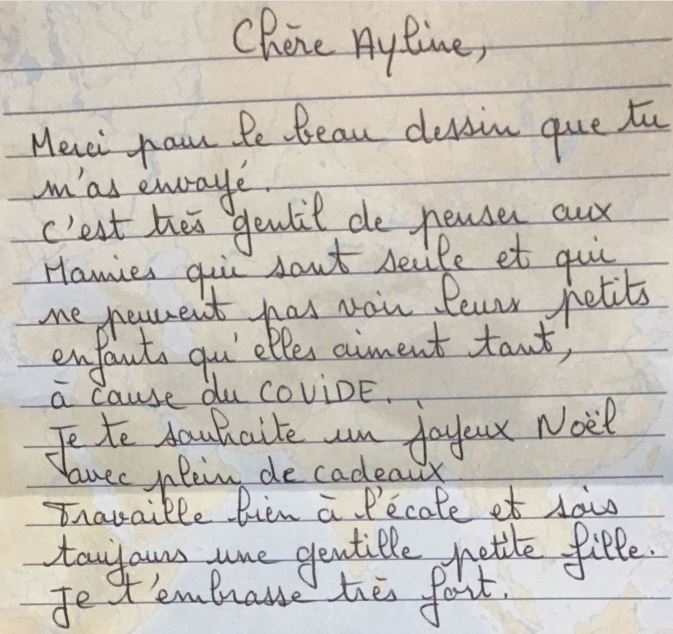 Chère Ayline,
Merci pour le beau dessin que tu
m'as envoyé.
C'est très gentil de penser aux
Mamies qui sont seule et qui
ne peuvent pas voir leurs petits
enfants qu'elles aiment tant,
à cause du COVIDE.
Je te souhaite un joyeux Noël
avec plein de cadeaux
Travaille bien à l'école et sois
toujours une gentille petite fille.
Je t'embrasse très fort.